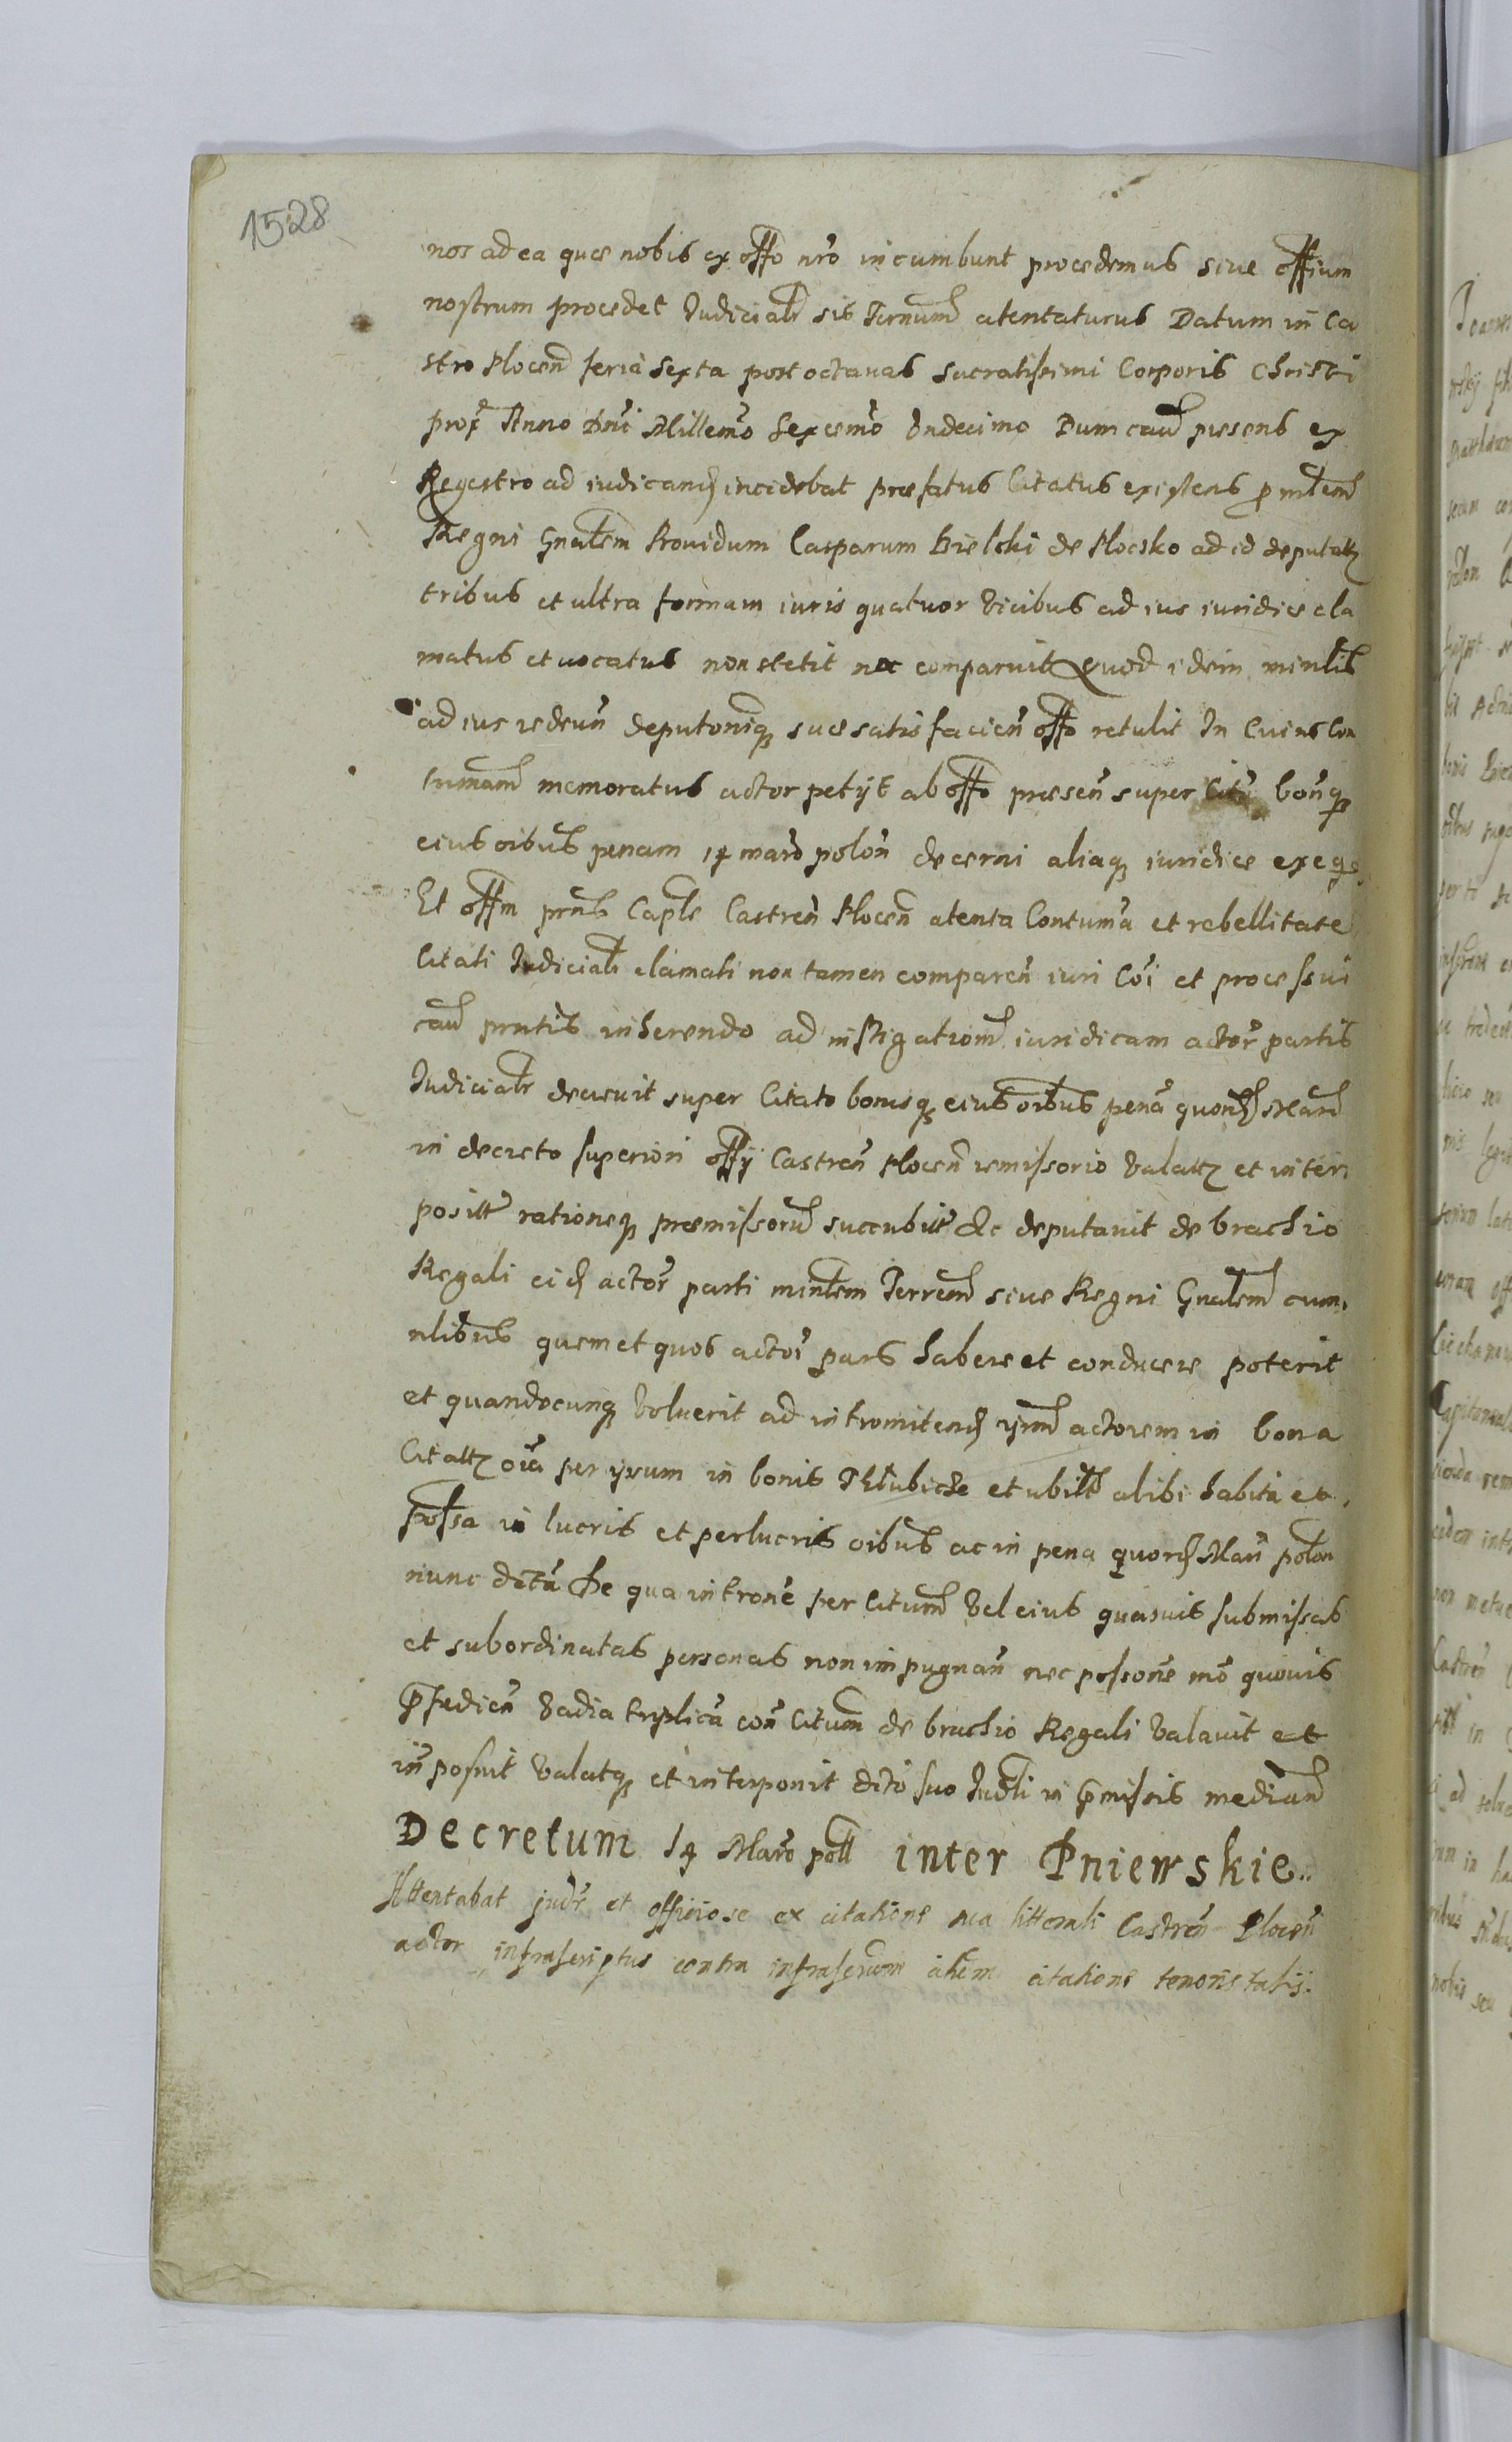 1528
nos ad ea quæ nobis ex offo nro incumbunt procedemus siue offium
nostrum procedet Iudicialr sis Ternum atentaturus Datum in Ca
stro Plocen feria sexta post octauas Sacratissimi Corporis Christi
prox Anno Dni Millemo Sexcemo Vndecimo Dum cau præsens ex
Regestro ad iudicand incidebat præfatus Citatus existens p mlem
Regni Gnalem Prouidum Casparum Bielski de Plocsko ad id deputat
tribus et ultra formam iuris quatuor vicibus ad ius iuridice cla
matus et uocatus non stetit nec comparuit Quod idem minlis
ad ius redeun deputoniq suæ satisfacien offo retulit In Cuius Con
tumam memoratus actor petijt ab offo præsen super Cito bonq
eius oibus penam 14 marc polon decerni aliaq iuridice exeq
Et offm prns Caple Castren Plocen atenta Contuma et rebellitate
Citati Iudicialr clamati non tamen comparen iuri Coi et processui
cau prntis inherendo ad instigationem iuridicam actor partis
Iudicialr decreuit super Citato bonisq eius oibus pena quord Marc
in decreto superiori offij Castren Plocen remissorio valat et inter
posit rationeq præmissoru succubit &c deputauit de brachio
Regali eid actor parti minlem Terrem siue Regni Gnalem cum
nlibus quem et quos actor pars habere et conducere poterit
et quandocunq voluerit ad intromitend ipm actorem in bona
Citat oia per ipsum in bonis Thlubicze et ubilt alibi habita et
possa in lucris et perlucris oibus ac in pena quord Marc polon
nunc decta De qua introne per Citum vel eius quasuis submissas
et subordinatas personas non impugnan nec possone mo quouis
præfedien vadia triplica con Citum de brachio Regali valauit et
inposuit valatq et interponit dcto suo Iudli in præmissis median
Decretum 14 Marc poll inter Pniewskie
Attentabat judr et officiose ex citatione sua litterali Castren Plocen
actor infrascriptus contra infrascrum citum citatione tenoris talis.